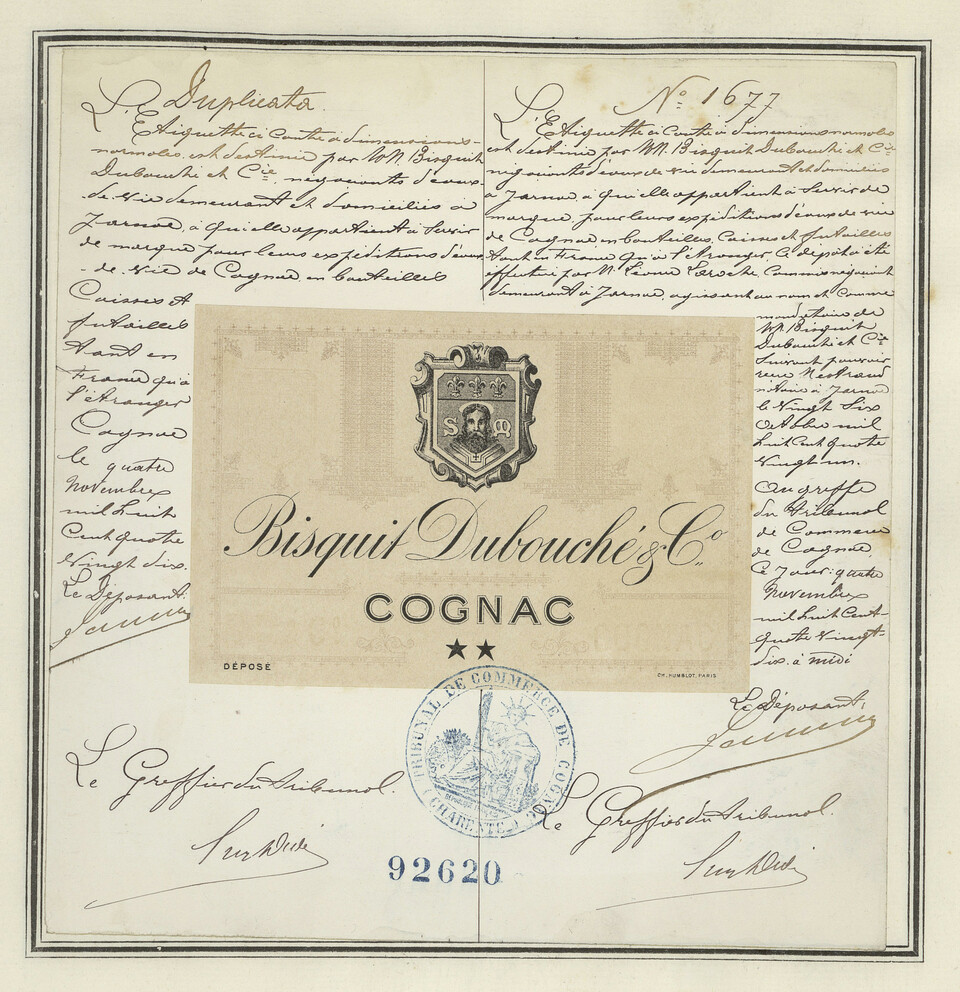 Duplicata
L'Etiquette ci contre à dimensions
normales, est destinée par MM. Bisquit
Dubouché et Cie, négociants d'eaux-
de-vie demeurant et domiciliés à
Jarnac, à qui elle appartient à servir
de marque pour leurs expéditions d'eaux
-de-vie de Cognac en bouteilles
Caisses et
futailles
tant en
France qu'à
l'étranger
Cognac
le quatre
Novembre
mil huit
cent quatre
vingt dix.
Le Déposant
Le Greffier du Tribunal.
No 1677
L'Etiquette ci contre à dimensions normales
est destinée par MM. Bisquit Dubouché et Cie
négociants d'eaux de vie demeurant et domiciliés
à Jarnac, à qui elle appartient à servir de
marque, pour leurs expéditions d'eaux de vie
de Cognac en bouteilles, Caisses et futailles
tant en France qu'à l'étranger, ce dépôt a été
effectué par M. Léonce Laroche, Commis négociant
demeurant à Jarnac, agissant au nom et comme
mandataire de
MM. Bisquit
Dubouché et Cie
suivant pouvoir
notaire à Jarnac
le Vingt Six
Octobre mil
huit cent quatre
vingt un.
au greffe
du Tribunal
de Commerce
de Cognac.
Ce jour: quatre
Novembre
mil huit cent-
quatre vingt-
dix. à midi
Le Déposant,
Le Greffier du Tribunal.
S M
Bisquit Dubouché & Co.
COGNAC
★★
DÉPOSÉ
CH. HUMBLOT, PARIS
TRIBUNAL DE COMMERCE DE COGNAC
(CHARENTE)
92620